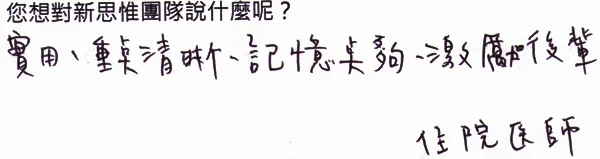 您想對新思惟團隊說什麼呢？
實用、重点清晰、記憶点夠、激勵後輩
住院医師